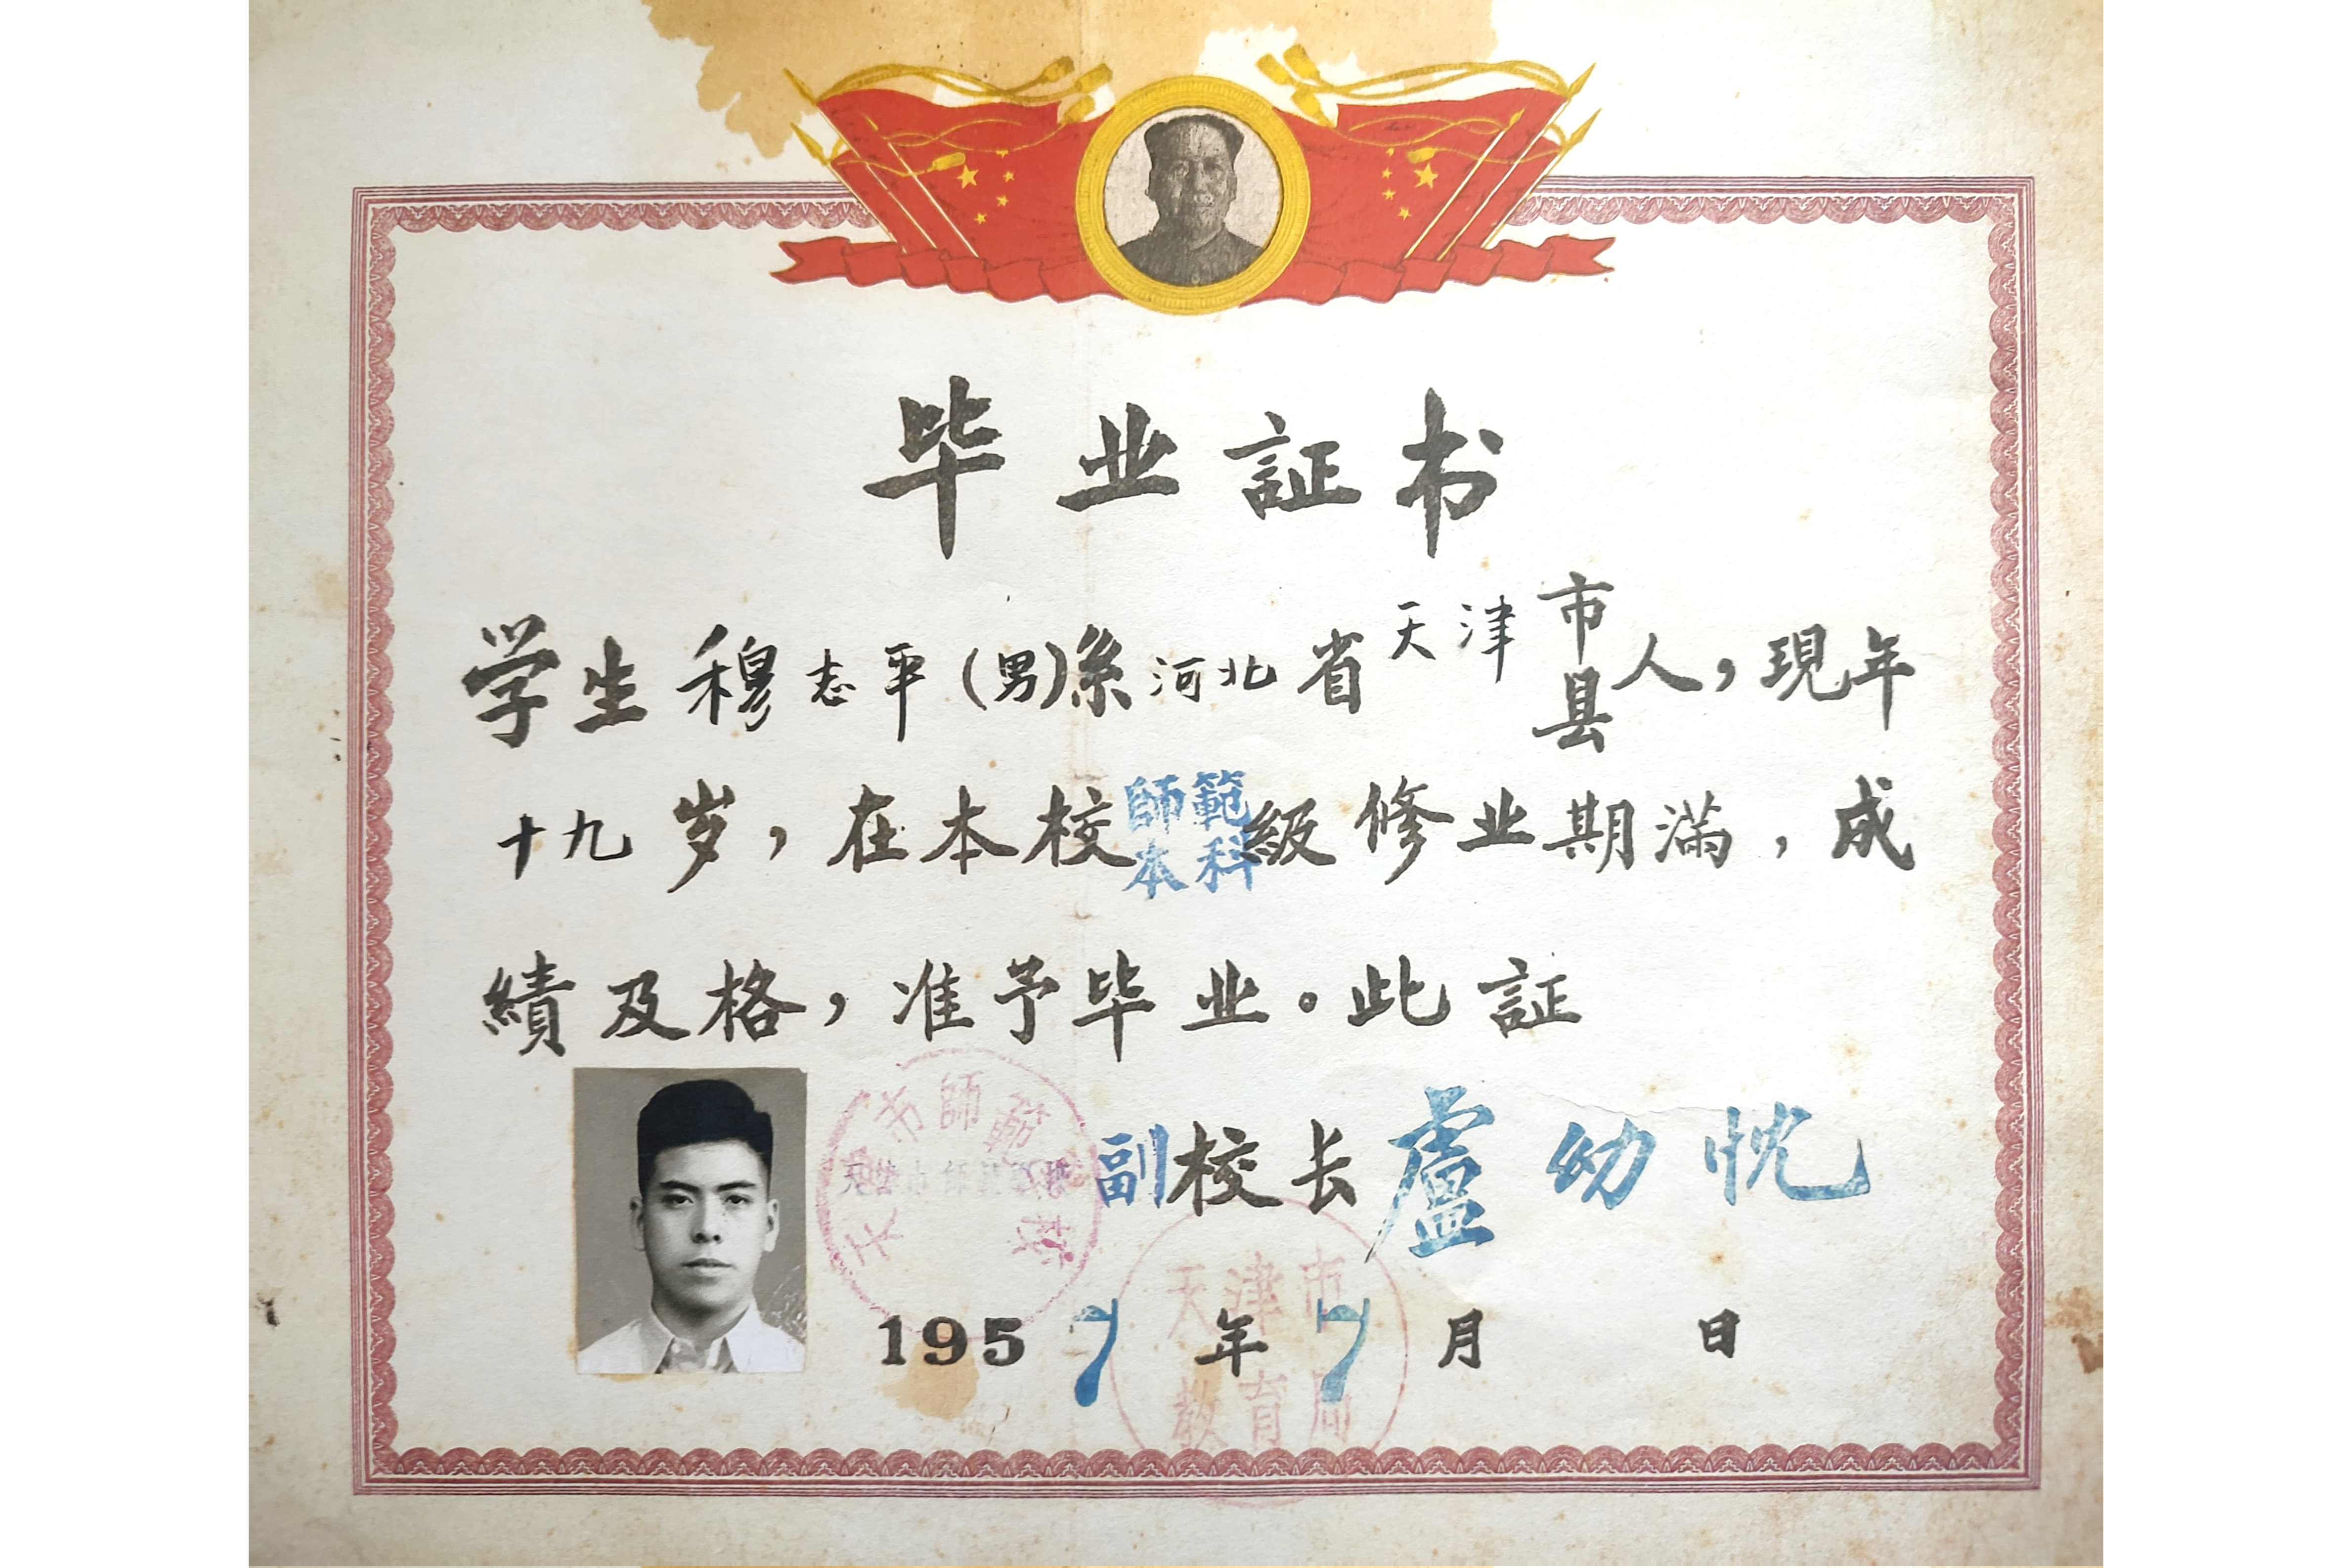 毕业証书
学生穆志平(男)系河北省天津市县人，現年
十九岁，在本校師範本科級修业期滿，成
績及格，准予毕业。此証
副校长盧幼忱
1957年7月 日
天津市師範学校
天津市教育局